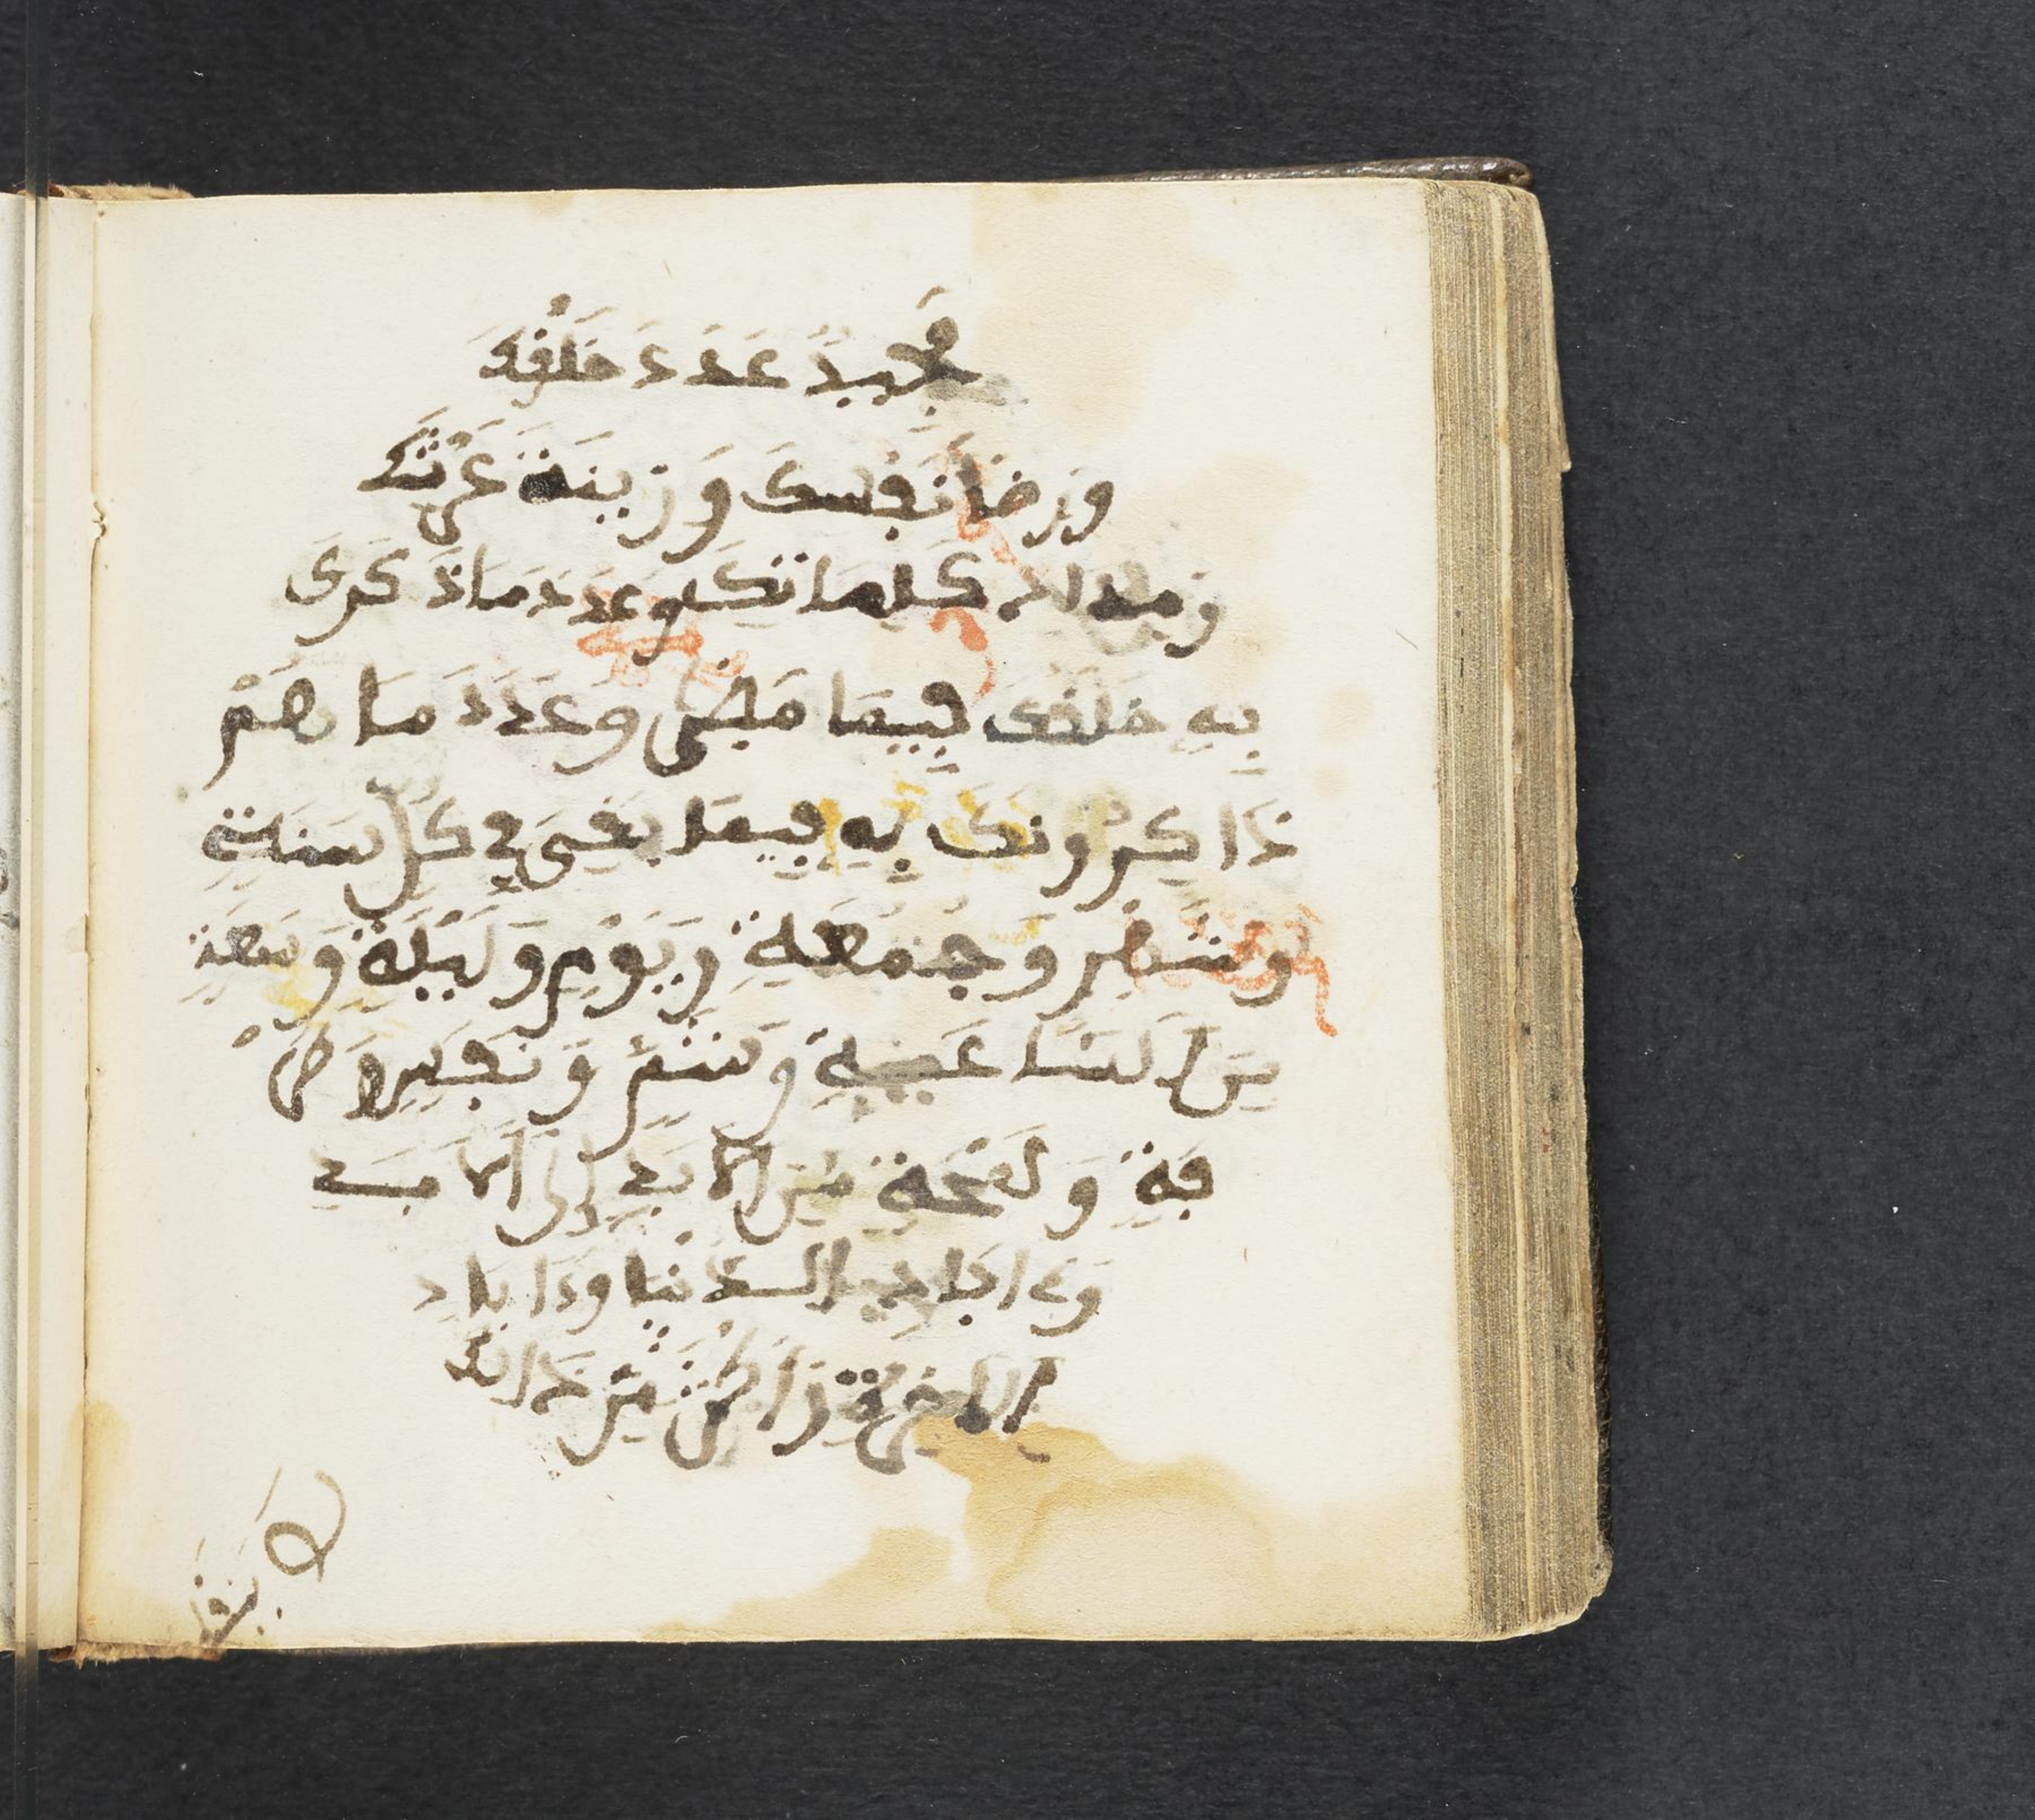 مجيدٌ عَدَدَ خَلْقِكَ
وَرِضَا نَفْسِكَ وَزِينَةَ عَرْشِكَ
وَمِدَادَ كَلِمَاتِكَ وَعَدَدَ مَا ذَكَرَكَ
بِهِ خَلْقُكَ فِيمَا مَضَى وَعَدَدَ مَا هُمْ
ذَاكِرُونَكَ بِهِ فِيمَا بَقِيَ فِي كُلِّ سَنَةٍ
وَشَهْرٍ وَجُمُعَةٍ وَيَوْمٍ وَلَيْلَةٍ وَسَعَةٍ
مِنَ السَّاعَةِ وَشَمٍّ وَنَفَسٍ وَطَرْ
فَةٍ وَلَمْحَةٍ مِنَ الْأَبَدِ إِلَى الْأَبَدِ
وَءَابَادِ الدُّنْيَا وَءَابَادِ
الْآخِرَةِ وَأَكْثَرَ مِنْ ذَالِكَ